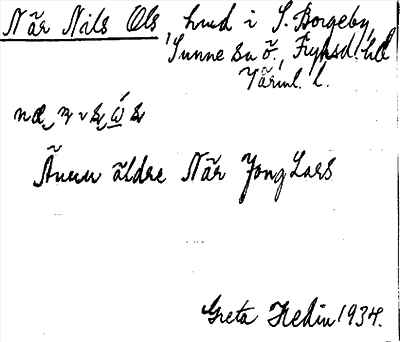 När Nils Ols hmd i S. Borgeby,
Sunne sn ö., Fryksd. hd
Värml. l.
Ännu äldre När Jong Lars
Greta Hedin 1934.